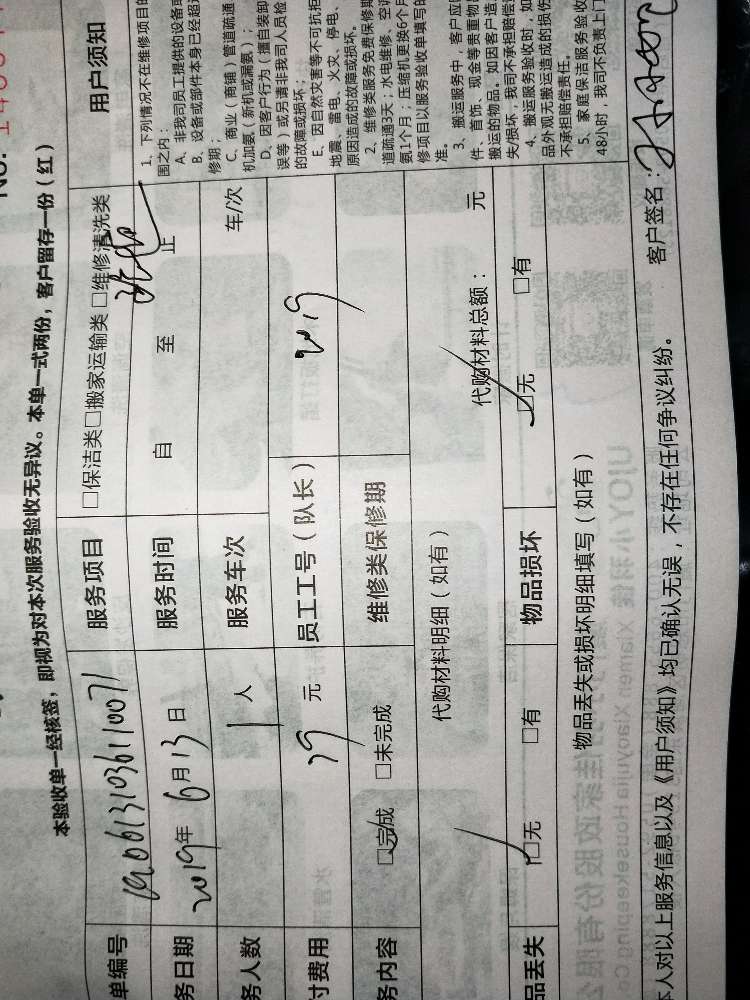 本验收单一经核签，即视为对本次服务验收无异议。本单一式两份，客户留存一份（红）
单编号 1906131036110071 服务项目 □保洁类□搬家运输类 □维修清洗类
务日期 2019年6月13日 服务时间 自 至 止
务人数 1人 服务车次 车/次
付费用 79元 员工工号（队长） 2019
务内容 □完成 □未完成 维修类保修期
代购材料明细（如有） 代购材料总额： 元
品丢失 □无 □有 物品损坏 □无 □有
物品丢失或损坏明细填写（如有）
本人对以上服务信息以及《用户须知》均已确认无误，不存在任何争议纠纷。 客户签名：
用户须知
1、下列情况不在维修项目的
围之内：
A、非我司员工提供的设备或
B、设备或部件本身已经超过
修期；
C、商业（商铺）管道疏通
机加氨（新机或漏氨）；
D、因客户行为（擅自装卸
误等）或另请非我司人员检
的故障或损坏；
E、因自然灾害等不可抗拒
地震、雷电、火灾、停电、
原因造成的故障或损坏。
2、维修类服务免费保修期
道疏通3天；水电维修、空调
氨1个月；压缩机更换6个月
修项目以服务验收单填写的
准。
3、搬运服务中，客户应
件、首饰、现金等贵重物
搬运的物品。如因客户造
失/损坏，我司不承担赔偿
4、搬运服务验收时，如
品外观无搬运造成的损伤
不承担赔偿责任。
5、家庭保洁服务验收
48小时，我司不负责上门